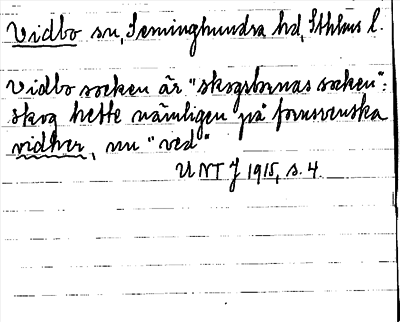 Vidbo sn, Seminghundra hd, Sthlms l.
Vidbo socken är "skogsbornas socken":
skog hette nämligen på fornsvenska
vidher, nu "ved"
UNT J 1915, s. 4